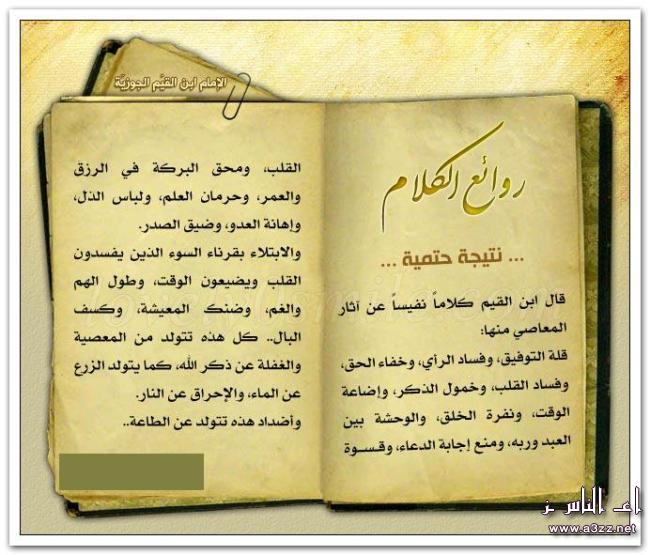 الإمام ابن القيّم الجوزيّة
روائع الكلام
... نتيجة حتمية ...
قال ابن القيم كلاماً نفيساً عن آثار
المعاصي منها:
قلة التوفيق، وفساد الرأي، وخفاء الحق،
وفساد القلب، وخمول الذكر، وإضاعة
الوقت، ونفرة الخلق، والوحشة بين
العبد وربه، ومنع إجابة الدعاء، وقسوة
القلب، ومحق البركة في الرزق
والعمر، وحرمان العلم، ولباس الذل،
وإهانة العدو، وضيق الصدر.
والابتلاء بقرناء السوء الذين يفسدون
القلب ويضيعون الوقت، وطول الهم
والغم، وضنك المعيشة، وكسف
البال.. كل هذه تتولد من المعصية
والغفلة عن ذكر الله، كما يتولد الزرع
عن الماء، والإحراق عن النار.
وأضداد هذه تتولد عن الطاعة..
الناس
www.a3zz.net